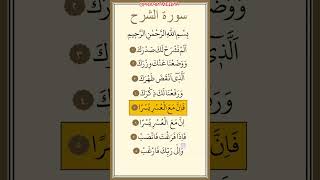 سورة الشرح
بِسْمِ اللَّهِ الرَّحْمَٰنِ الرَّحِيمِ
أَلَمْ نَشْرَحْ لَكَ صَدْرَكَ ١
وَوَضَعْنَا عَنْكَ وِزْرَكَ ٢
الَّذِي أَنْقَضَ ظَهْرَكَ ٣
وَرَفَعْنَا لَكَ ذِكْرَكَ ٤
فَإِنَّ مَعَ الْعُسْرِ يُسْرًا ٥
إِنَّ مَعَ الْعُسْرِ يُسْرًا ٦
فَإِذَا فَرَغْتَ فَانْصَبْ ٧
وَإِلَىٰ رَبِّكَ فَارْغَبْ ٨